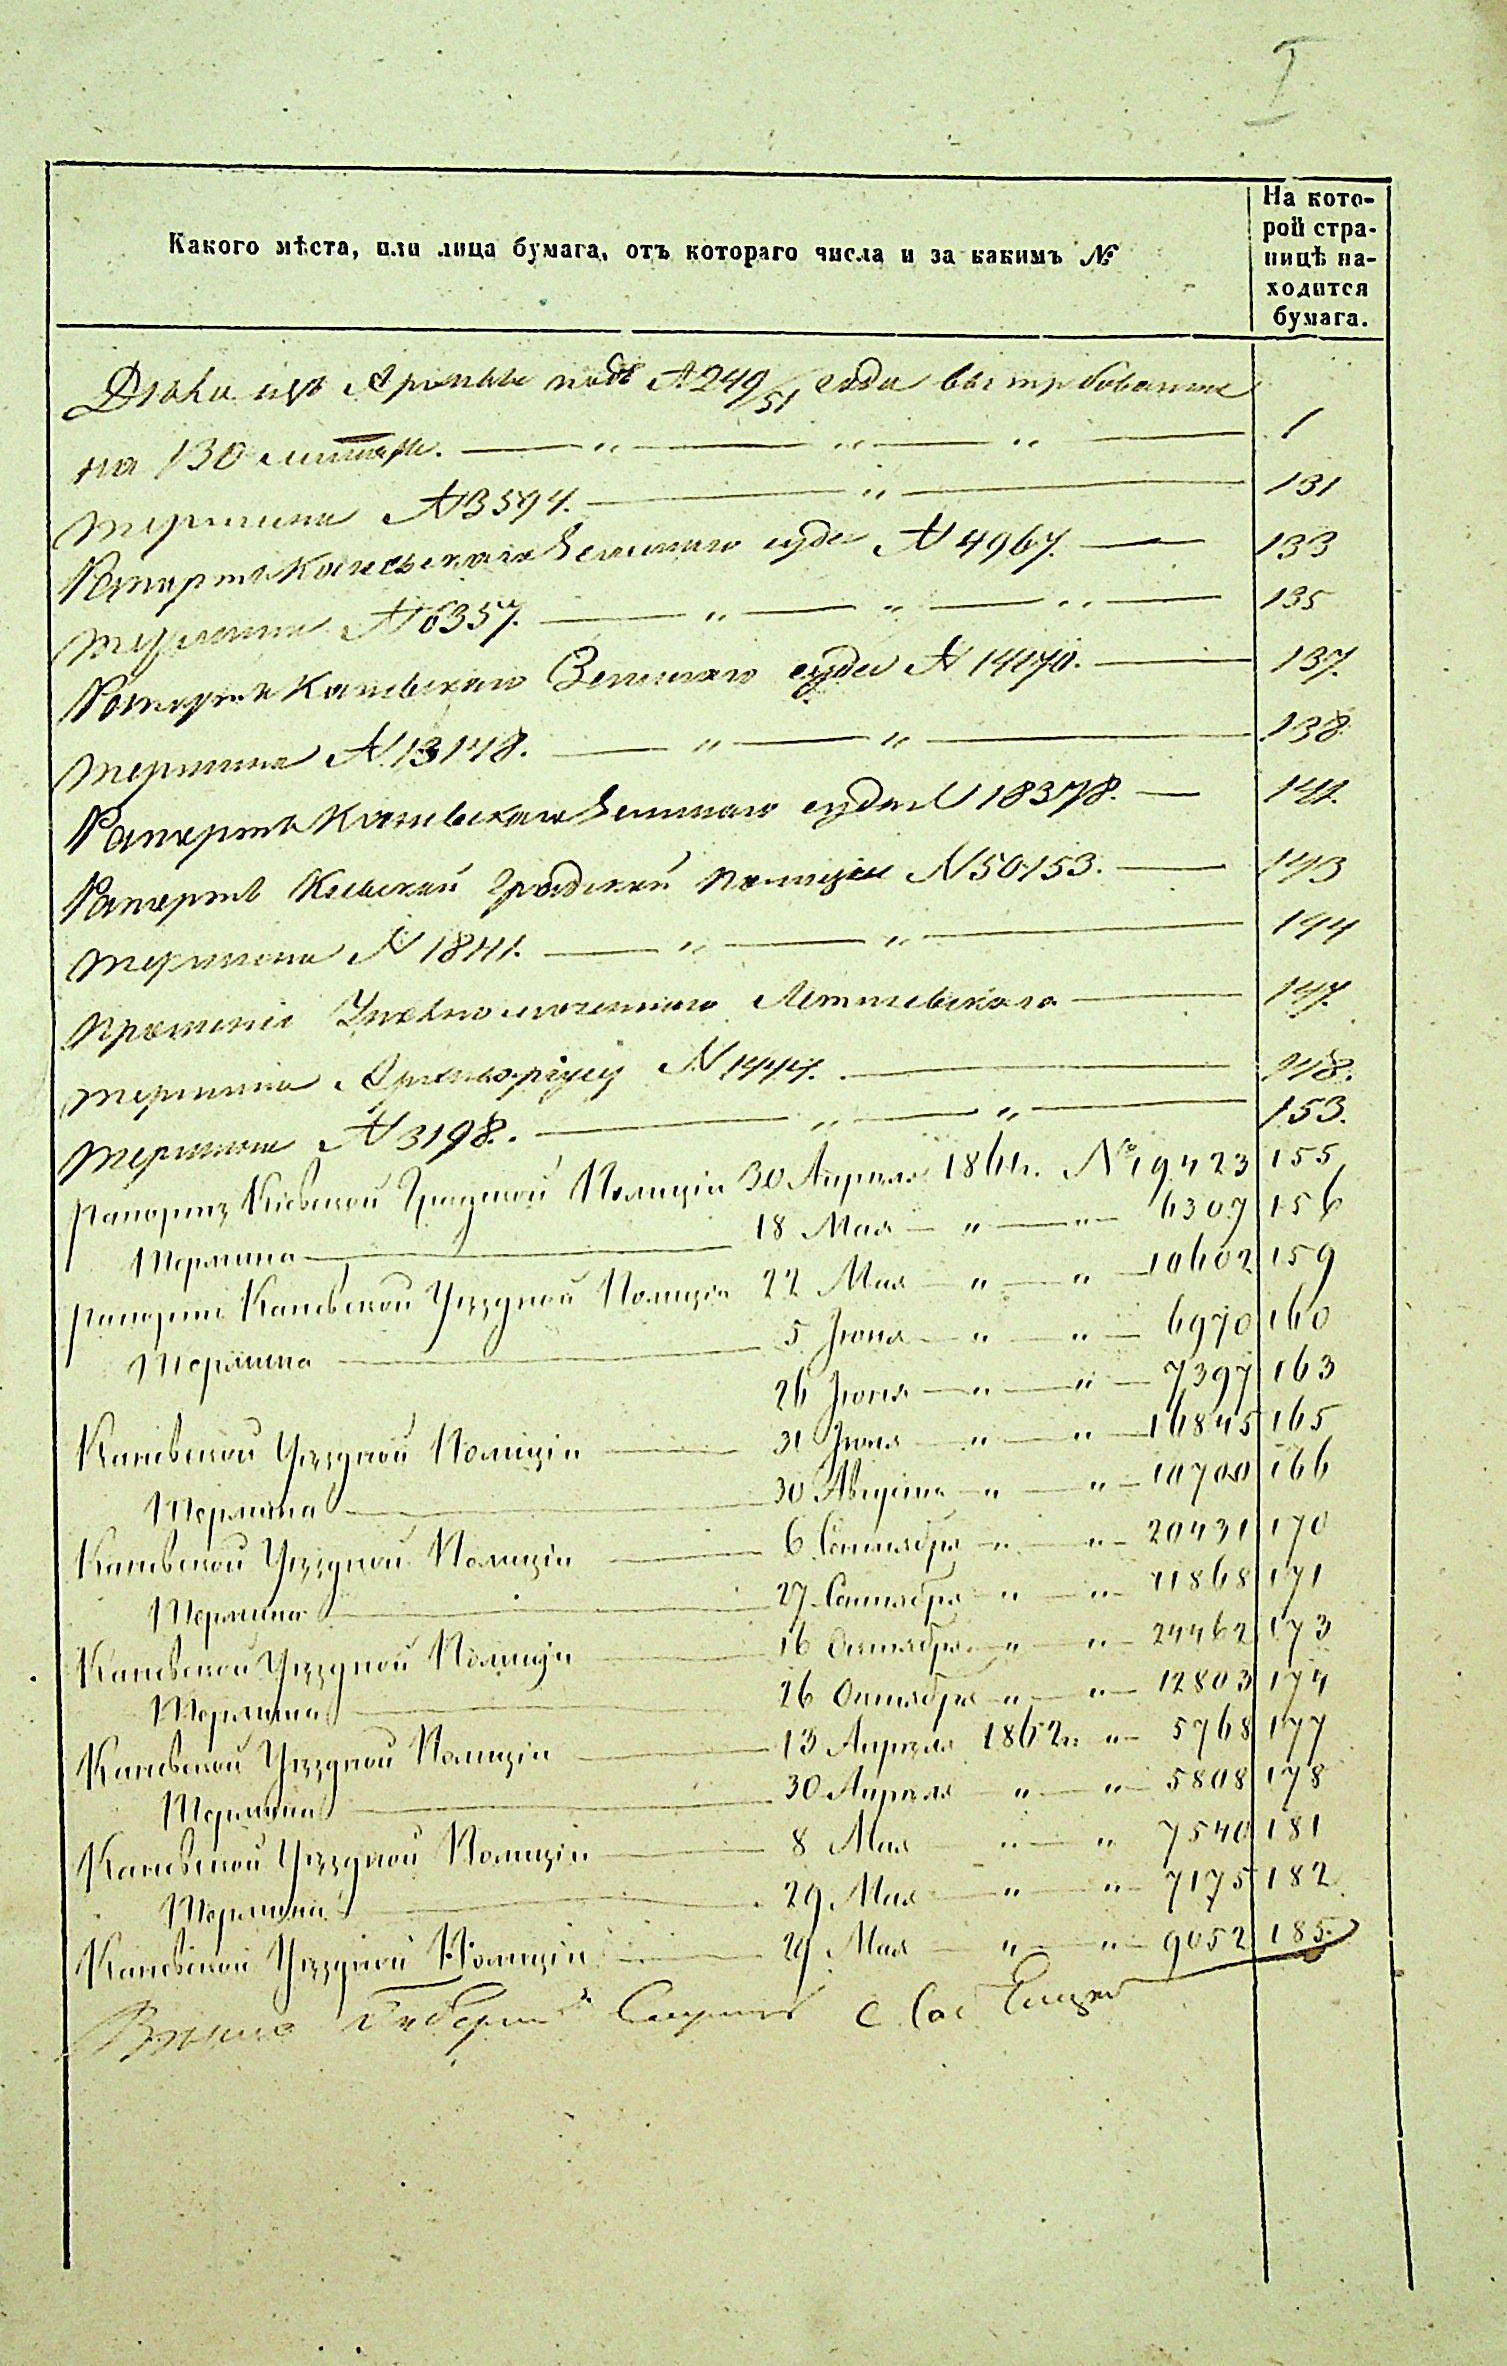 I
Какого мѣста, или лица бумага, отъ котораго числа и за какимъ №
На кото-
рой стра-
ницѣ на-
ходится
бумага.
Дѣло изъ Архива подъ № 249/51 года вытребованное
на 130 листах. — „ — „ — „ — 1
термина № 3594. — „ — 131
Рапортъ Каневскаго Земскаго суда № 4967. — 133
термина № 6357. — „ — „ — „ — 135
Рапортъ Каневскаго Земскаго суда № 14070. — 137.
термина № 13148. — „ — „ — 138
Рапортъ Каневскаго Земскаго суда № 18378. — 141.
Рапортъ Кіевской Градской полиціи № 50153. — 143
термина № 1841. — „ — „ — 144
прошеніе Уполномоченнаго — 147.
термина № 1444. — 148.
термина № 3198. — „ — „ — 153.
рапортъ Кіевской Градской Полиціи 30 Апрѣля 1861 г. № 19423 155
Термина — 18 Мая — „ — „ — 6307 156
рапортъ Каневской Уѣздной Полиціи 22 Мая — „ — „ — 10602 159
Термина — 5 Іюня — „ — „ — 6970 160
26 Іюня — „ — „ — 7397 163
Каневской Уѣздной Полиціи — 31 Іюля — „ — „ — 16845 165
Термина — 30 Августа — „ — „ — 10700 166
Каневской Уѣздной Полиціи — 6 Сентября — „ — „ — 20431 170
Термина — 27 Сентября — „ — „ — 11868 171
Каневской Уѣздной Полиціи — 16 Октября — „ — „ — 24462 173
Термина — 26 Октября — „ — „ — 12803 174
Каневской Уѣздной Полиціи — 13 Апрѣля 1862 г. „ — 5768 177
Термина — 30 Апрѣля — „ — „ — 5808 178
Каневской Уѣздной Полиціи — 8 Мая — „ — „ 7540 181
Термина — 29 Мая — „ — „ — 7175 182
Каневской Уѣздной Полиціи — 29 Мая — „ — „ — 9052 185.